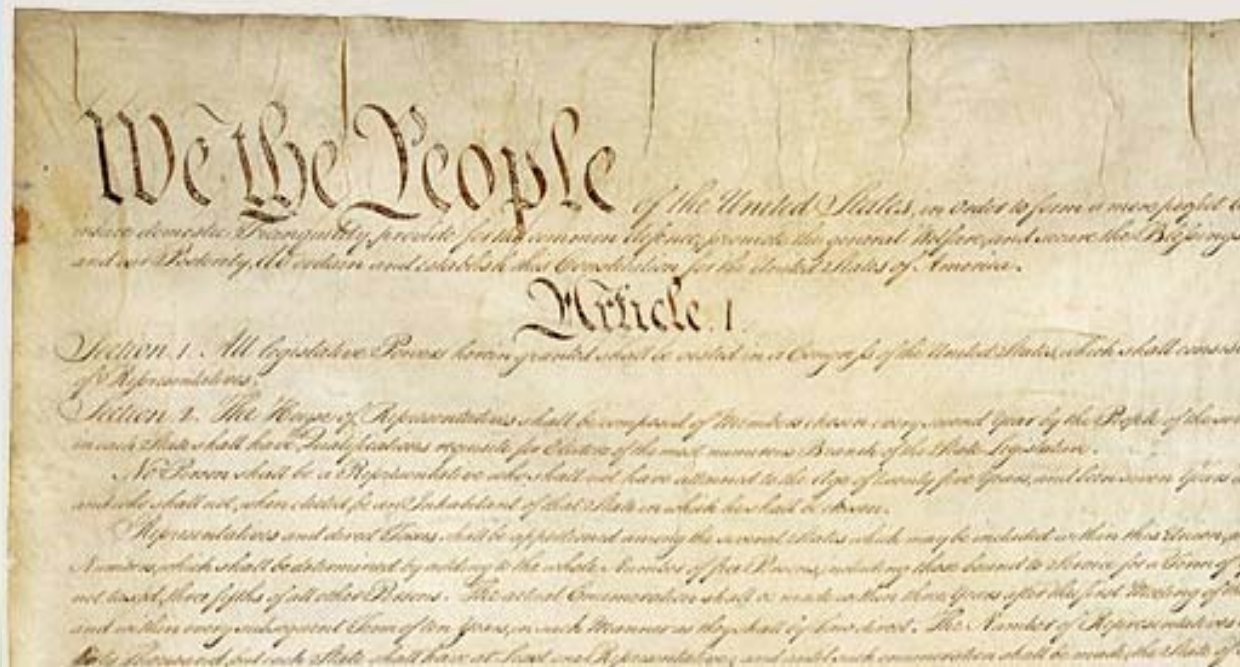 We the People of the United States, in Order to form a more perfect
insure domestic Tranquility, provide for the common defence, promote the general Welfare, and secure the Blessings
and our Posterity, do ordain and establish this Constitution for the United States of America.
Article. I.
Section. 1. All legislative Powers herein granted shall be vested in a Congress of the United States, which shall consist
of Representatives.
Section. 2. The House of Representatives shall be composed of Members chosen every second Year by the People of the
in each State shall have Qualifications requisite for Electors of the most numerous Branch of the State Legislature.
No Person shall be a Representative who shall not have attained to the Age of twenty five Years, and been seven Years
and who shall not, when elected, be an Inhabitant of that State in which he shall be chosen.
Representatives and direct Taxes shall be apportioned among the several States which may be included within this Union,
Numbers, which shall be determined by adding to the whole Number of free Persons, including those bound to Service for a Term of
not taxed, three fifths of all other Persons. The actual Enumeration shall be made within three Years after the first Meeting of the
and within every subsequent Term of ten Years, in such Manner as they shall by Law direct. The Number of Representatives
thirty Thousand, but each State shall have at Least one Representative; and until such enumeration shall be made, the State of